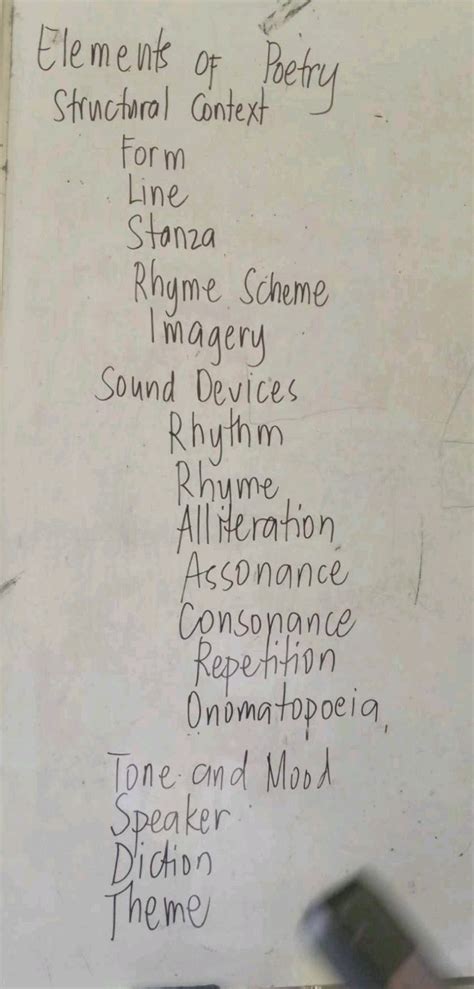 Elements of Poetry
Structural Context
Form
Line
Stanza
Rhyme Scheme
Imagery
Sound Devices
Rhythm
Rhyme
Alliteration
Assonance
Consonance
Repetition
Onomatopoeia
Tone and Mood
Speaker
Diction
Theme